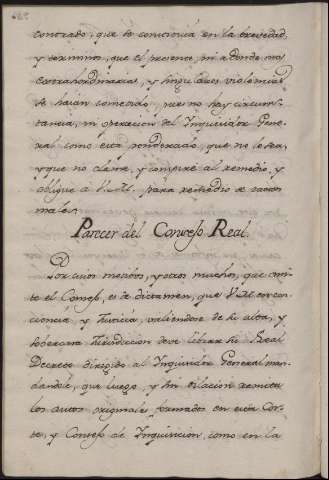 contrado, que lo convencia en la brevedad
y terminos, que el presente, ni adonde mas
extrahordinarias, y singulares violencias
se haian cometido, pues no hay circuns-
tancia, ni operacion del Inquisidor Gene-
ral como está ponderado, que no lo sea,
y que no clame, y conspire al remedio, y
obligue á V.M. para remedio de tantos
males.
Parecer del Consejo Real.
Por cuios motivos, y otros muchos, que omi-
te el Consejo, es de dictamen, que V.M. en con-
ciencia, y Justicia, valiendose de su alta, y
soberana Jurisdiccion deve librar su Real
Decreto dirigido al Inquisidor General man-
dandole, que luego, y sin dilacion remita
los autos originales formados en esta Cor-
te, y Consejo de Inquisicion, como en la